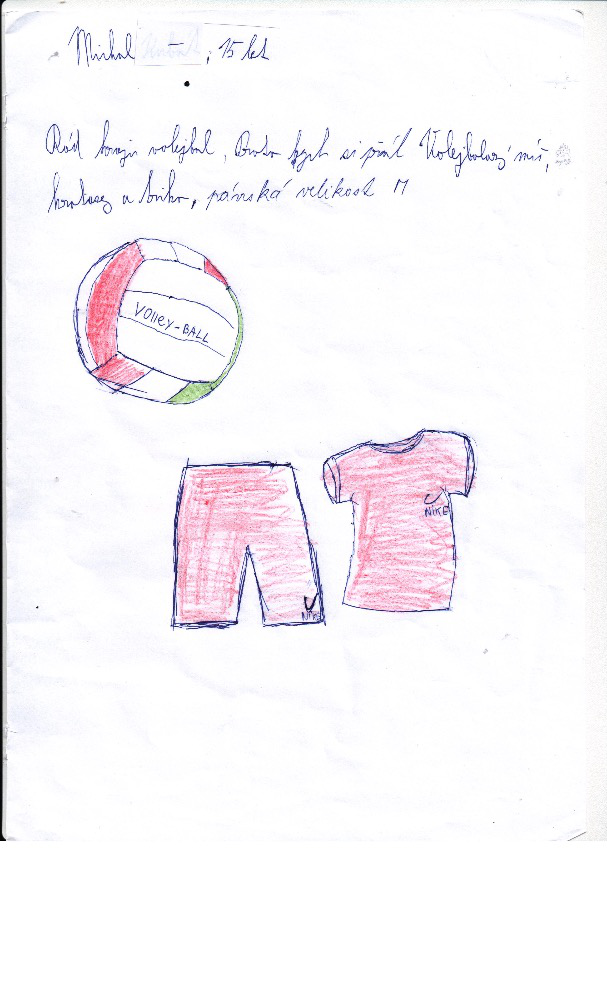 Michal – ; 15 let
Rád hraji volejbal, Proto bych si přál Volejbalový míč,
kraťasy a triko, pánská velikost M
VOlleY-BALL
NIKE
NIKE